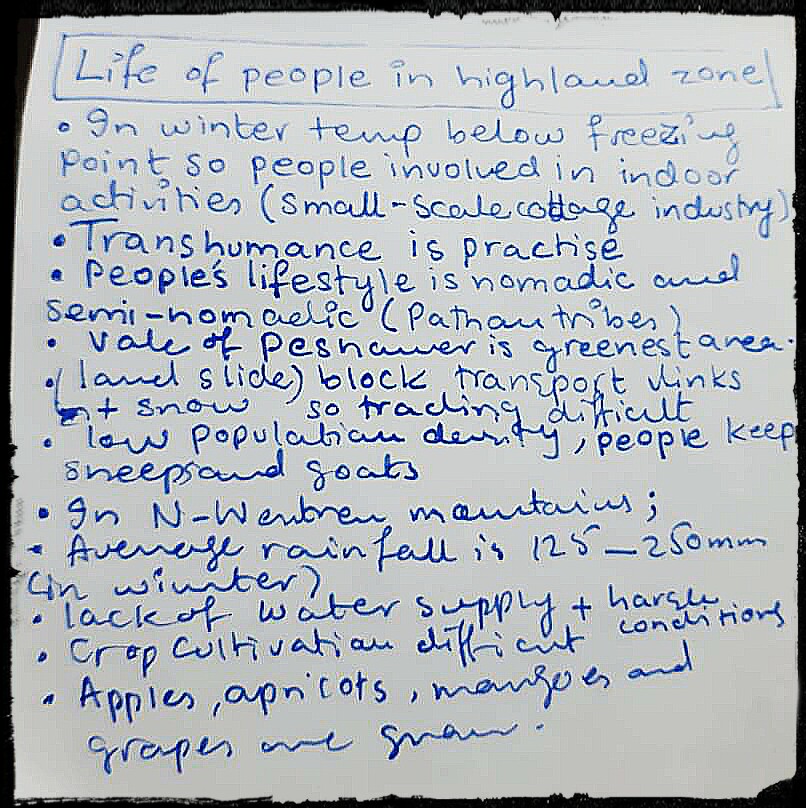 Life of people in highland zone
• In winter temp below freezing
point so people involved in indoor
activities (small-scale cottage industry)
• Transhumance is practise
• People's lifestyle is nomadic and
semi-nomadic (Pathan tribes)
• Vale of Peshawer is greenest area.
• (land slide) block transport links
+ snow so trading difficult
• low population density, people keep
sheeps and goats
• In N-Western mountains;
• Average rainfall is 125-250mm
(in winter)
• lack of water supply + harsh
conditions
• Crop Cultivation difficult
• Apples, apricots, mangoes and
grapes are grown.